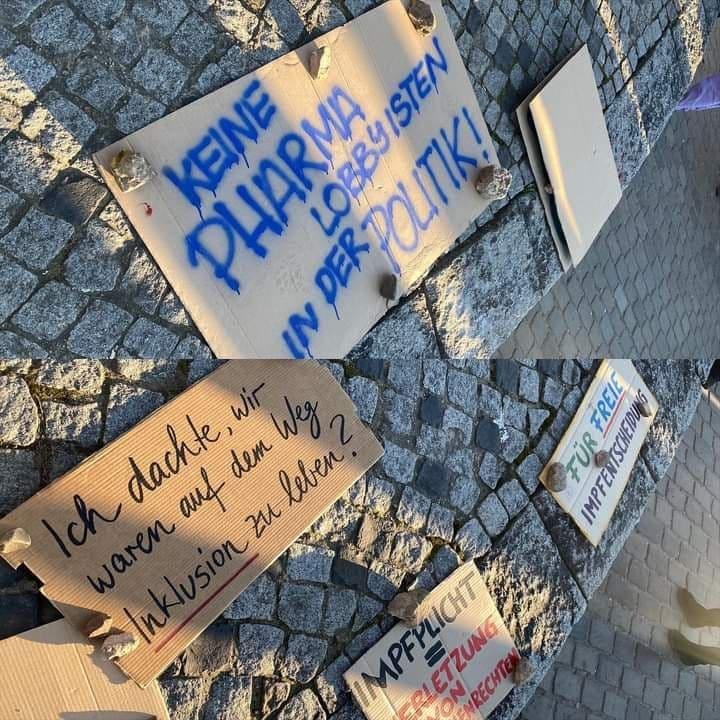 KEINE
PHARMA
LOBBYISTEN
IN DER POLITIK!
Ich dachte, wir
waren auf dem Weg
Inklusion zu leben?
FÜR FREIE
IMPFENTSCHEIDUNG
IMPFPLICHT
=
ERLETZUNG
VON
ENRECHTEN